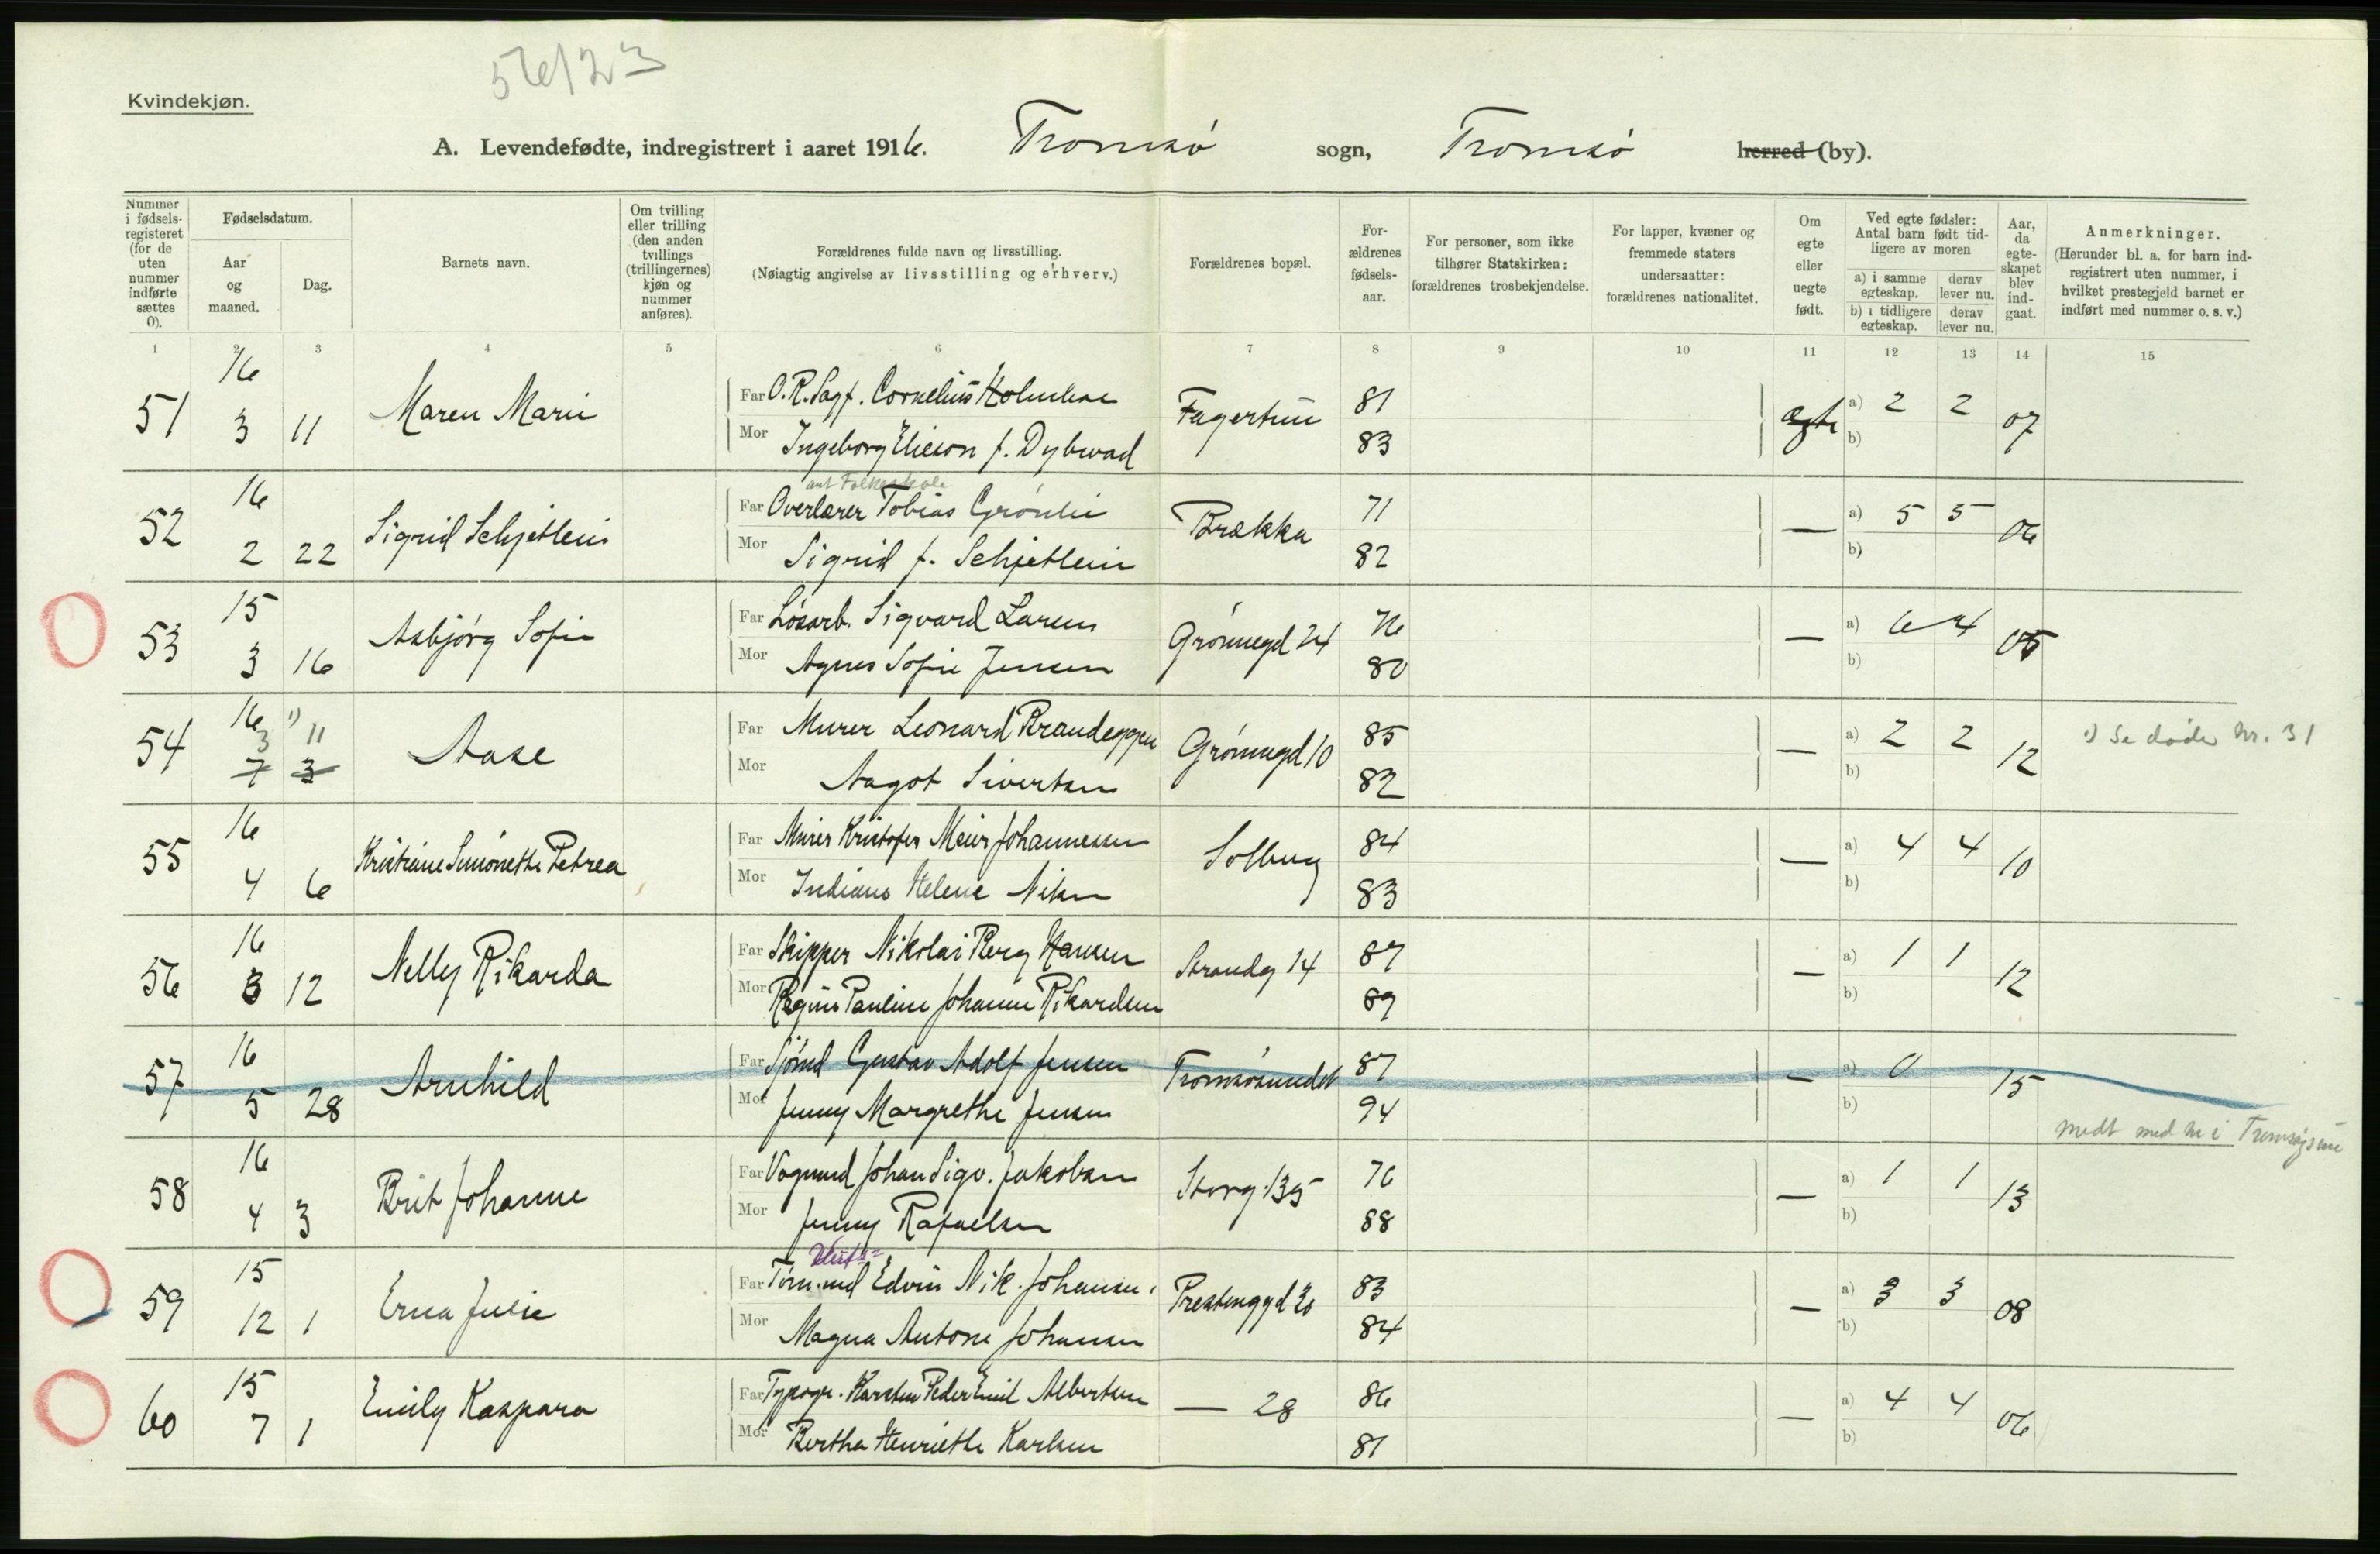 56/23
Kvindekjøn.
A. Levendefødte, indregistrert i aaret 1916. Tromsø sogn, Tromsø herred (by).
Nummer i fødsels-registeret (for de uten nummer indførte sættes 0).
Fødselsdatum.
Aar og maaned.
Dag.
Barnets navn.
Om tvilling eller trilling (den anden tvillings (trillingernes) kjøn og nummer anføres).
Forældrenes fulde navn og livsstilling.
(Nøiagtig angivelse av livsstilling og erhverv.)
Forældrenes bopæl.
For-ældrenes fødsels-aar.
For personer, som ikke tilhører Statskirken: forældrenes trosbekjendelse.
For lapper, kvæner og fremmede staters undersaatter: forældrenes nationalitet.
Om egte eller uegte født.
Ved egte fødsler: Antal barn født tid-ligere av moren
a) i samme egteskap.
derav lever nu.
b) i tidligere egteskap.
derav lever nu.
Aar, da egte-skapet blev ind-gaat.
Anmerkninger.
(Herunder bl. a. for barn ind-registrert uten nummer, i hvilket prestegjeld barnet er indført med nummer o. s. v.)
1 2 3 4 5 6 7 8 9 10 11 12 13 14 15
51 16 3 11 Maren Marie Far O.R.Sagf. Cornelius Holmboe Fagertun 81 egte a) 2 2 07
Mor Ingeborg Elieson f. Dybwad 83 b)
ant Folkeskole
52 16 2 22 Sigrid Schjetlein Far Overlærer Tobias Grönlie Brækka 71 — a) 5 5 06
Mor Sigrid f. Schjetlein 82 b)
53 15 3 16 Asbjörg Sofie Far Lösarb. Sigvard Larsen Grönnegd 24 76 — a) 6 4 05
Mor Agnes Sofie Jensen 80 b)
54 16 3 1) 11 7 3 Aase Far Murer Leonard Brandeggen Grönnegd 10 85 — a) 2 2 12 1) Se döde nr. 31
Mor Aagot Sivertsen 82 b)
55 16 4 6 Kristiane Simonette Petrea Far Murer Kristofer Meier Johannessen Solburg 84 — a) 4 4 10
Mor Indiane Helene Nilsen 83 b)
56 16 3 12 Nelly Rikarda Far Skipper Nikolai Berg Hansen Strandg 14 87 — a) 1 1 12
Mor Regine Pauline Johanne Rikardsen 89 b)
57 16 5 28 Arnhild Far Sjömd Gustav Adolf Jensen Tromsösundet 87 — a) 0 15
Mor Jenny Margrethe Jensen 94 b)
medt med nr i Tromsøjsun
58 16 4 3 Brit Johanne Far Vognmd Johan Sigv. Jakobsen Storg. 135 76 — a) 1 1 13
Mor Jenny Rafaelsen 88 b)
59 15 12 1 Erna Julie Far Töm.md Edvin Nik. Johansen. Prestenggd 30 83 — a) 3 3 08
Mor Magna Antone Johansen 84 b)
60 15 7 1 Emily Kaspara Far Typogr. Karsten Peder Emil Albertsen — 28 86 — a) 4 4 06
Mor Bertha Henriette Karlsen 81 b)